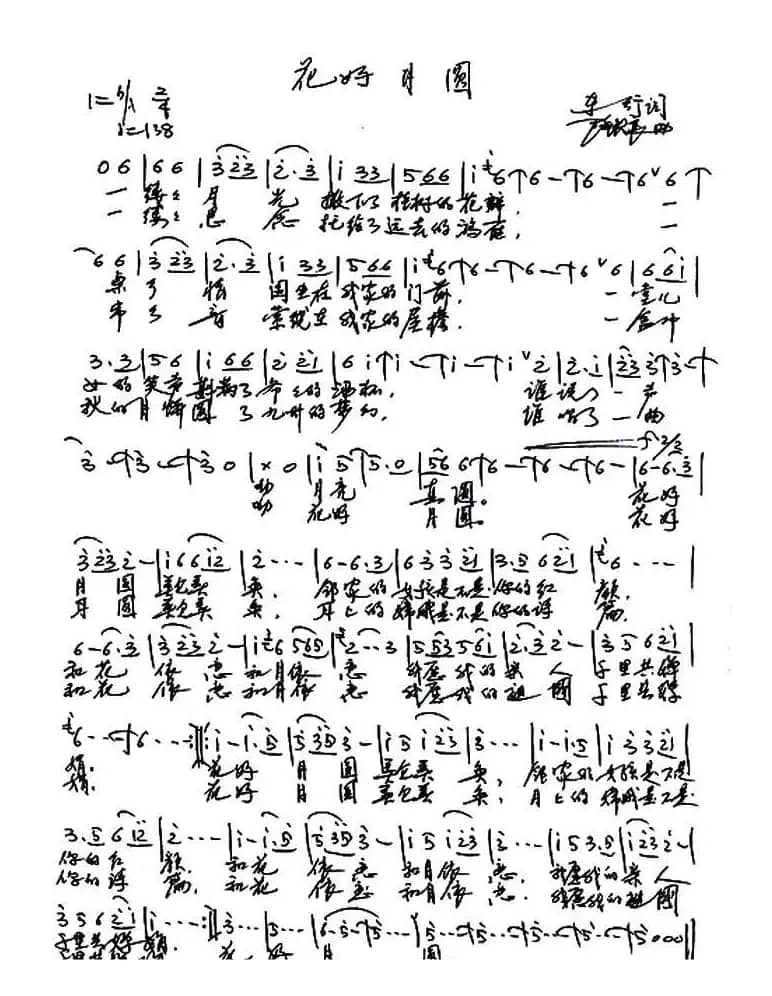 花好月圆
1= 2/4
♩=138
车行词
曲
0 6 | 6 6 | 3 2 3 | 2 · 3 | i 3 3 | 5 6 6 | i 6 6 6 6 6
一缕缕月光撒下了桂树的花瓣, 一
一缕缕思念托给了远去的鸿雁, 一
6 6 | 3 2 3 | 2 · 3 | i 3 3 | 5 6 6 | i 6 6 6 6 6 | 6 6 i |
桌了 围坐在我家的门前, 一
串了 在我家的屋檐, 一
3 · 3 | 5 6 | i 6 6 | 2 2 1 | 6 i i i i 2 | 2 · i | 2 3 3 3
女的笑声斟满了爷爷的酒杯, 谁说了一声
秋的月辉圆了九州的梦幻, 谁唱了一曲
3 3 3 3 0 | × 0 | i 5 5 · 0 | 5 6 6 6 6 6 6 | 6 - 6 · 3 |
呦 月亮 真圆。 花好
呦 花好 月圆。 花好
3 2 3 2 - | i 6 6 i 2 | 2 - - - | 6 - 6 · 3 | 6 3 3 2 1 | 3 · 5 6 2 1 | 6 - - - |
月圆美仑美奂, 邻家的女孩是不是你的红颜,
月圆美仑美奂, 月上的嫦娥是不是你的诗篇,
6 - 6 · 3 | 3 2 3 2 - | i 6 5 6 5 | 2 - - 3 | 5 5 3 5 6 i | 2 · 3 2 - | 3 5 6 2 1 |
和花依恋和月依恋 我愿我的亲人千里共婵
和花依恋和月依恋 我愿我的祖国千里共婵
6 - - - 6 - - - :|| i - i · 5 | 5 3 5 3 - | i 5 i 2 3 | 3 - - - | i - i · 5 | i 3 3 2 1 |
娟。 花好月圆美仑美奂, 邻家的女孩是不是
娟。 花好月圆美仑美奂, 月上的嫦娥是不是
3 · 5 6 i 2 | 2 - - - | i - i · 5 | 5 3 5 3 - | i 5 i 2 3 | 3 - - - | i 5 3 · 5 | i 2 3 2 - |
你的红颜, 和花依恋和月依恋, 我愿我的亲人
你的诗篇, 和花依恋和月依恋, 我愿我的祖国
3 5 6 2 i | i - - - :|| 3 - - - | 5 - - - | 6 - 5 - 5 - - - 5 - - - 5 - - - 5 - - - 5 0 0 0 ||
千里共婵娟。 花好月圆